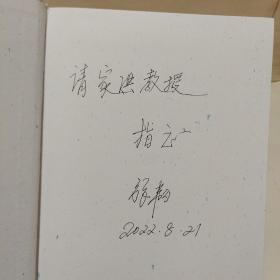 请家洪教授
指正
张韧
2022.8.21